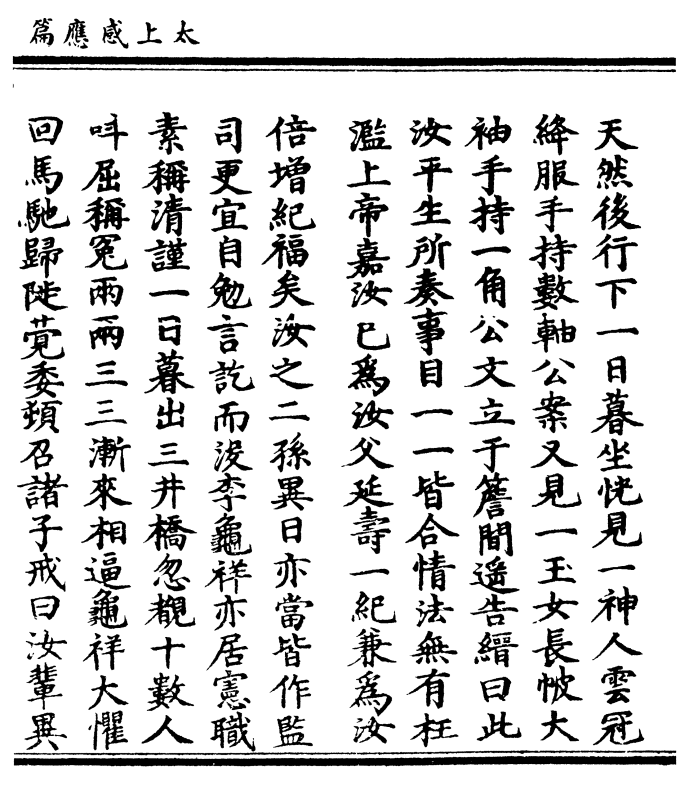 太上感應篇
天然後行下一日暮坐恍見一神人雲冠
絳服手持數軸公案又見一玉女長帔大
袖手持一角公文立于簷間遥告縉曰此
汝平生所奏事目一一皆合情法無有枉
濫上帝嘉汝已爲汝父延壽一紀兼爲汝
倍增紀福矣汝之二孫異日亦當皆作監
司更宜自勉言訖而没李龜祥亦居憲職
素稱清謹一日暮出三井橋忽覩十數人
呌屈稱冤兩兩三三漸來相逼龜祥大懼
回馬馳歸陡覺委頓召諸子戒曰汝輩異